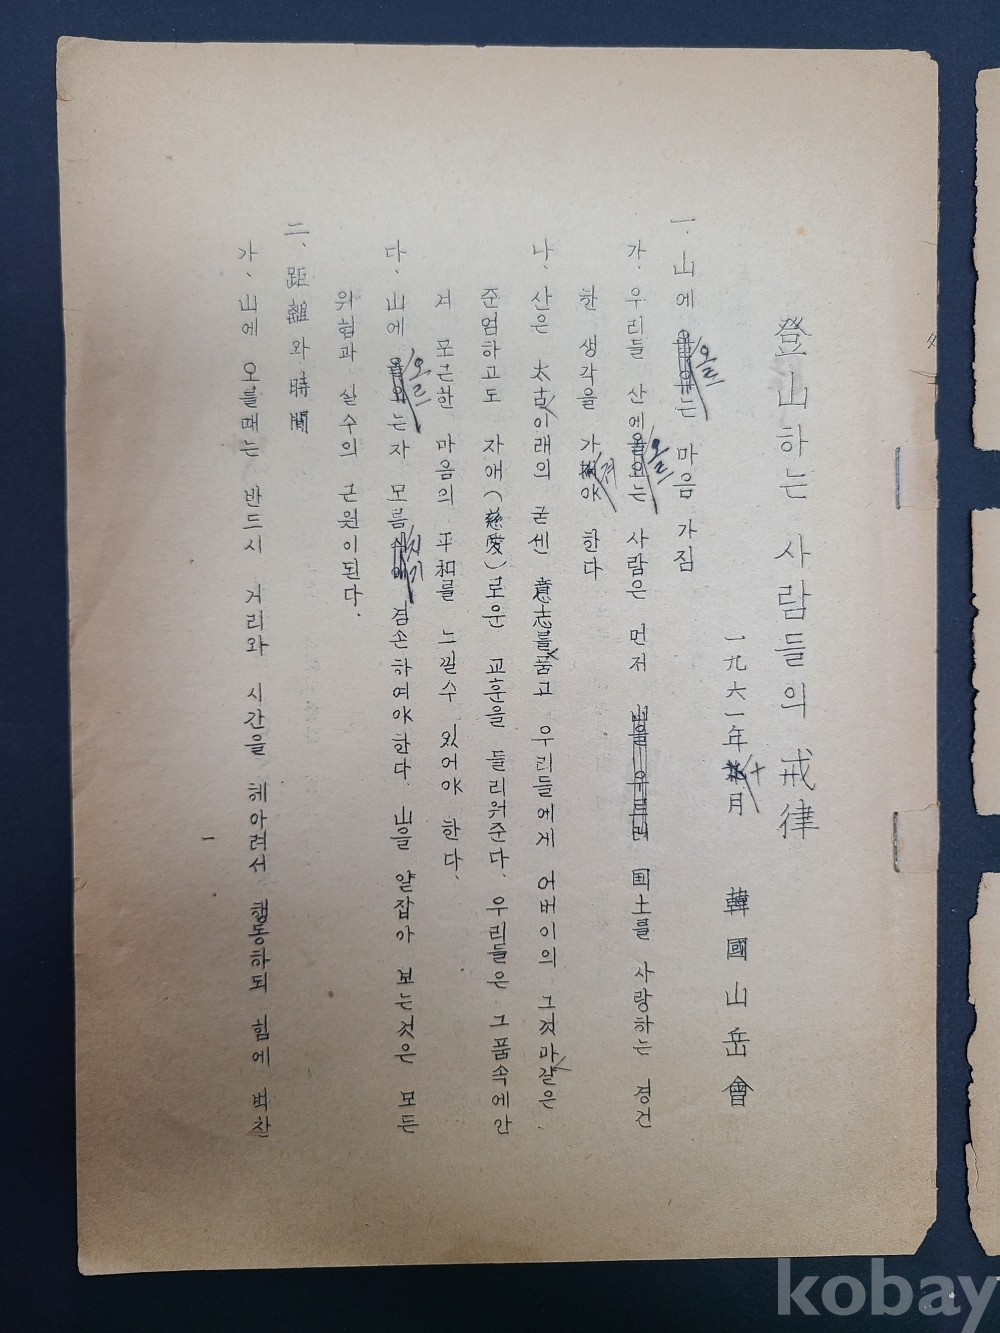 登山하는 사람들의 戒律
一九六一年十月 韓國山岳會
一. 山에 오르는 마음 가짐
가. 우리들 산에 오르는 사람은 먼저 国土를 사랑하는 경건
한 생각을 가져야 한다
나. 산은 太古이래의 굳센 意志를 품고 우리들에게 어버이의 그것마같은
준엄하고도 자애(慈愛)로운 교훈을 들리워준다. 우리들은 그품속에안
겨 포근한 마음의 平和를 느낄수 있어야 한다.
다. 山에 오르는자 모름지기 겸손하여야한다. 山을 얕잡아 보는것은 모든
위험과 실수의 근원이된다.
二. 距離와 時間
가. 山에 오를때는 반드시 거리와 시간을 헤아려서 행동하되 힘에 벅찬
一
kobay